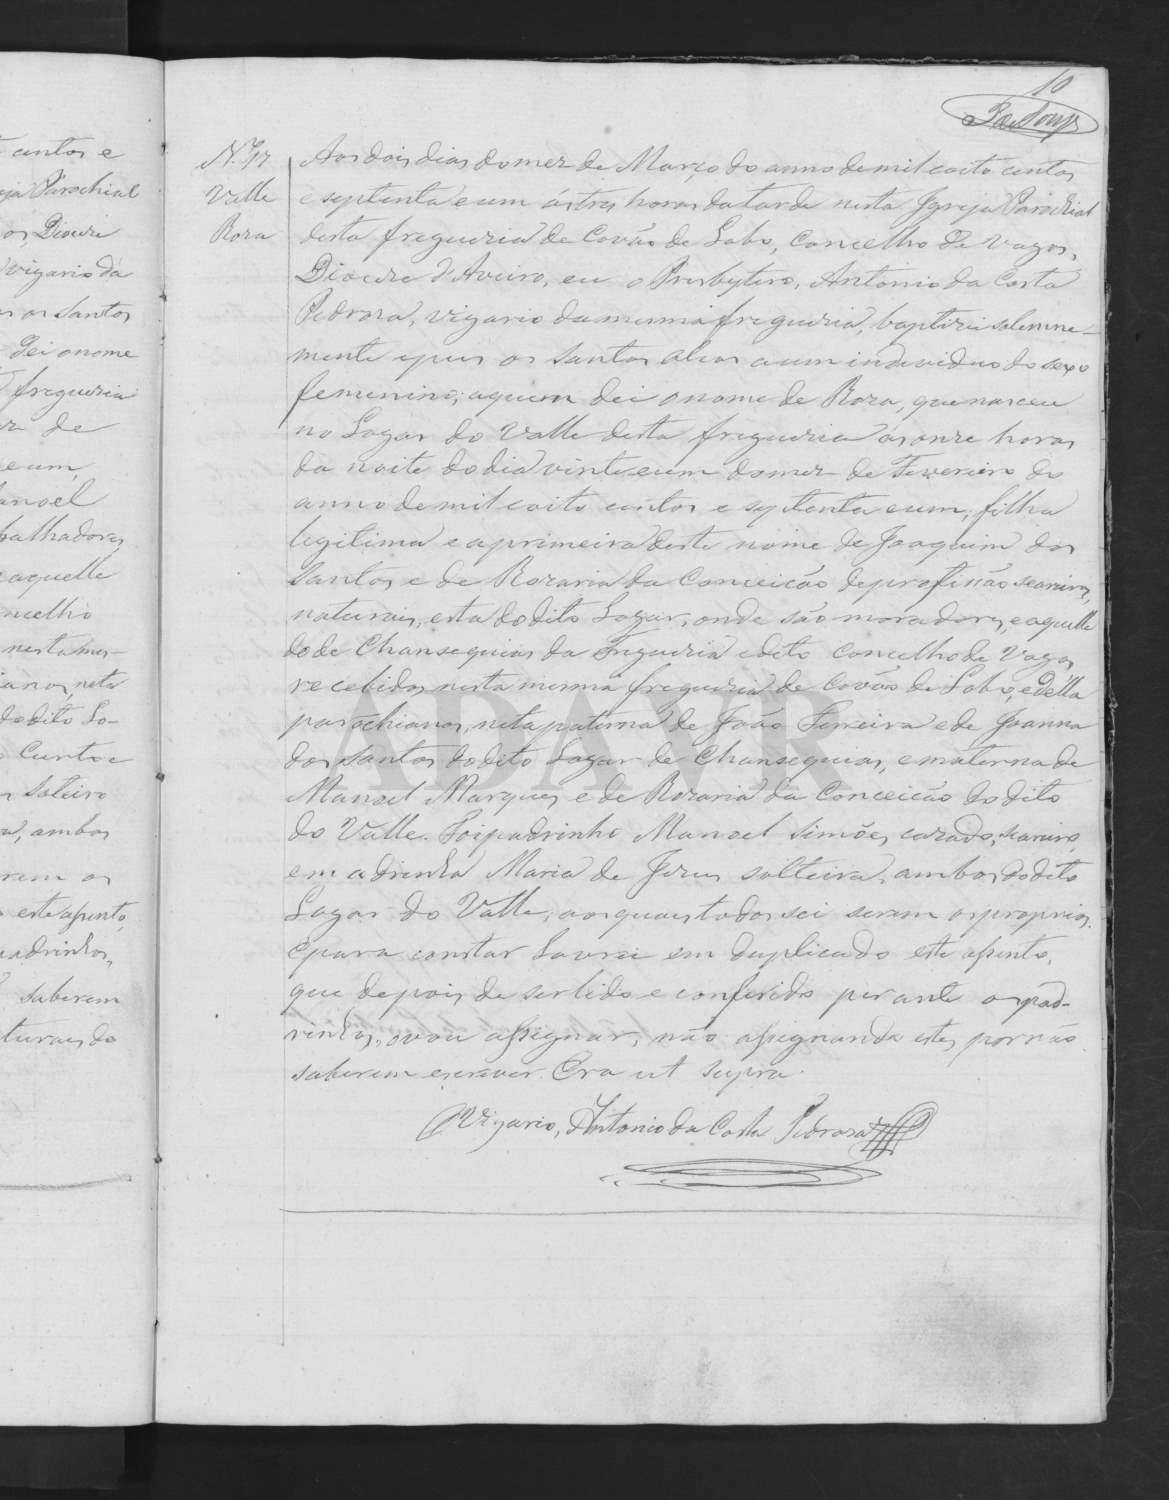 10
centos e
ja Parochial
os, Diocese
vigario da
os santos
dei o nome
freguezia
de
e um,
anoel
balhadores,
e aquelle
ncelho
nesta mes-
ianos, neta
do dito Lo-
Curto e
solteiro
ambos
rem os
este assento,
adrinhos,
saberem
turaes do
N.º 17
Valle
Roza
Aos dois dias do mez de Março do anno de mil e oito centos
e septenta e um ás tres horas da tarde nesta Igreja Parochial
desta freguezia de Covão de Lobo, Concelho de Vagos,
Diocese d'Aveiro, eu o Presbytero, Antonio da Costa
Pedroza, vigario da mesma freguezia, baptizei solemne-
mente e puz os santos oleos a um individuo do sexo
femenino; a quem dei o nome de Roza, que nasceu
no Logar do Valle desta freguezia ás onze horas
da noite do dia vinte e um do mez de Fevereiro do
anno de mil e oito centos e septenta e um; filha
legitima e a primeira deste nome de Joaquim dos
Santos e de Rozaria da Conceição de profissão seareiros,
naturaes, esta do dito Logar, onde são moradores, e aquelle
do de Chansequeias da Freguezia e dito concelho de Vagos
recebidos nesta mesma freguezia de Covão de Lobo, e d'ella
parochianos, neta paterna de João Ferreira e de Joanna
dos Santos do dito Logar de Chansequeias, e materna de
Manoel Marques e de Rozaria da Conceicão do dito
do Valle. Foi padrinho Manoel Simões, cazado, seareiro,
e madrinha Maria de Jezus solteira, ambos do dito
Logar do Valle; aos quaes todos sei serem os proprios.
E para constar lavrei em duplicado este assento,
que depois de ser lido e conferido perante os pad-
rinhos, o vou assignar, não assignando estes por não
saberem escrever. Era ut supra.
O Vigario, Antonio da Costa Pedroza
ADAVR